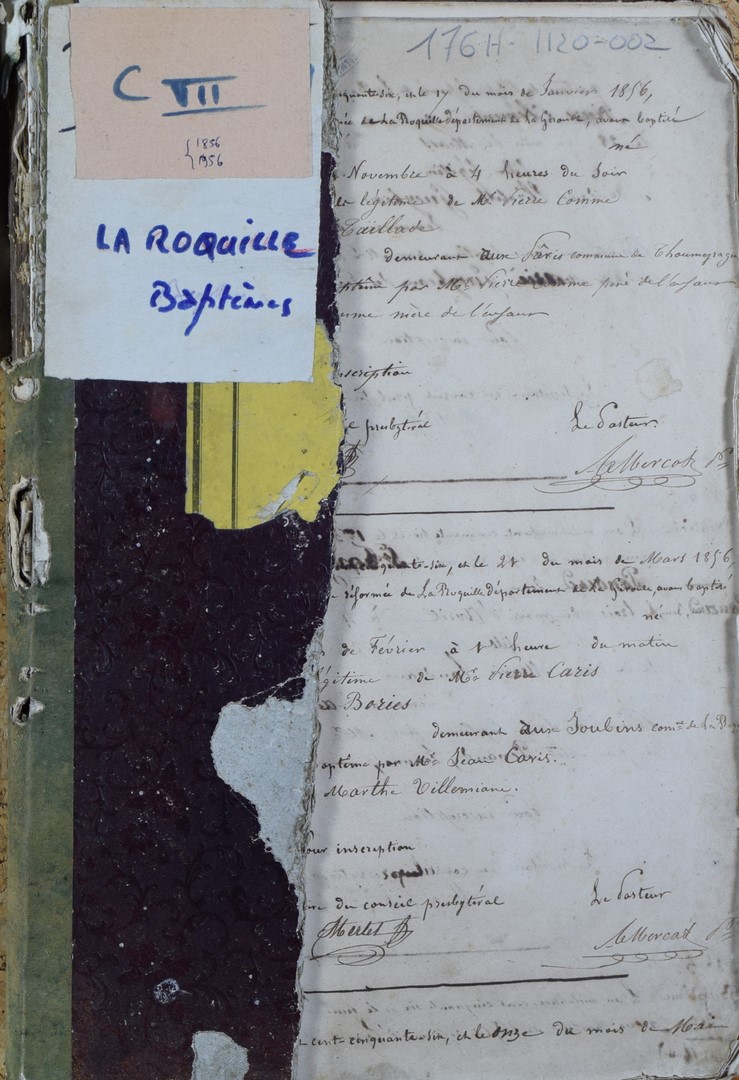 C VII
1856
1956
LA ROQUILLE
Baptêmes
176H-1120-002
quante-six, et le 17 du mois de Janvier 1856,
de La Roquille département de la Gironde, avons baptisé
né
Novembre à 4 heures du soir
légitime de Mr Pierre Comme
Taillade
demeurant aux Pâris commune de Thoumeyragu
ptême par Mr Pierre Comme père de l'enfant
mme mère de l'enfant
nscription
l presbytéral
Le Pasteur
quante-six, et le 21 du mois de Mars 1856,
réformée de La Roquille département de la Gironde, avons baptisé
né
de Février, à 1 heure du matin
gitime de Mr Pierre Caris
Bories
demeurant aux Joubins comne de La Roq
aptême par Mr Jean Caris.
Marthe Villemiane.
our inscription
re du conseil presbytéral
Le Pasteur
Merlet
cent-cinquante-six, et le onze du mois de Mai